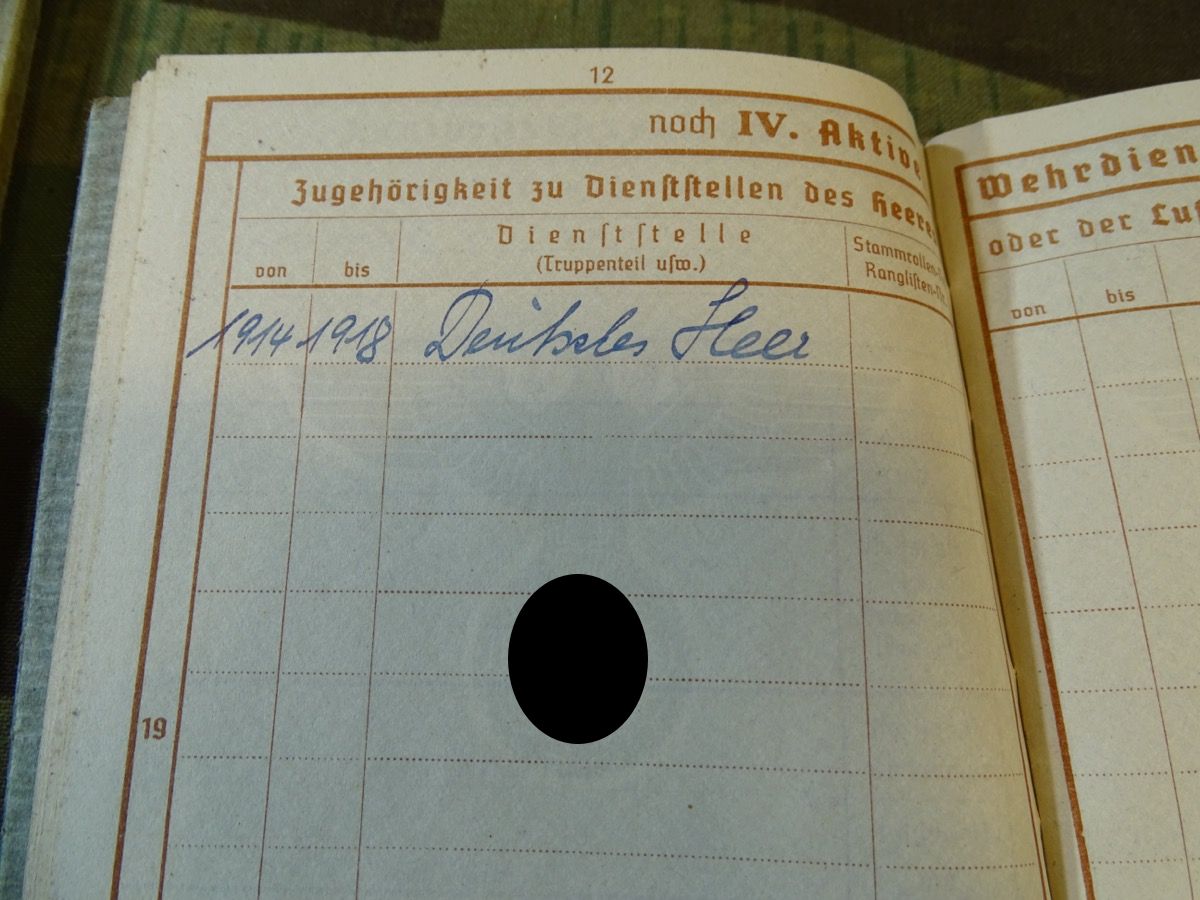 12
noch IV. Aktive
Zugehörigkeit zu Dienststellen des Heeres
Dienststelle
von bis (Truppenteil usw.)
Stammrollen-
Ranglisten-Nr.
1914 1918 Deutsches Heer
19
Wehrdien
oder der Luf
von bis